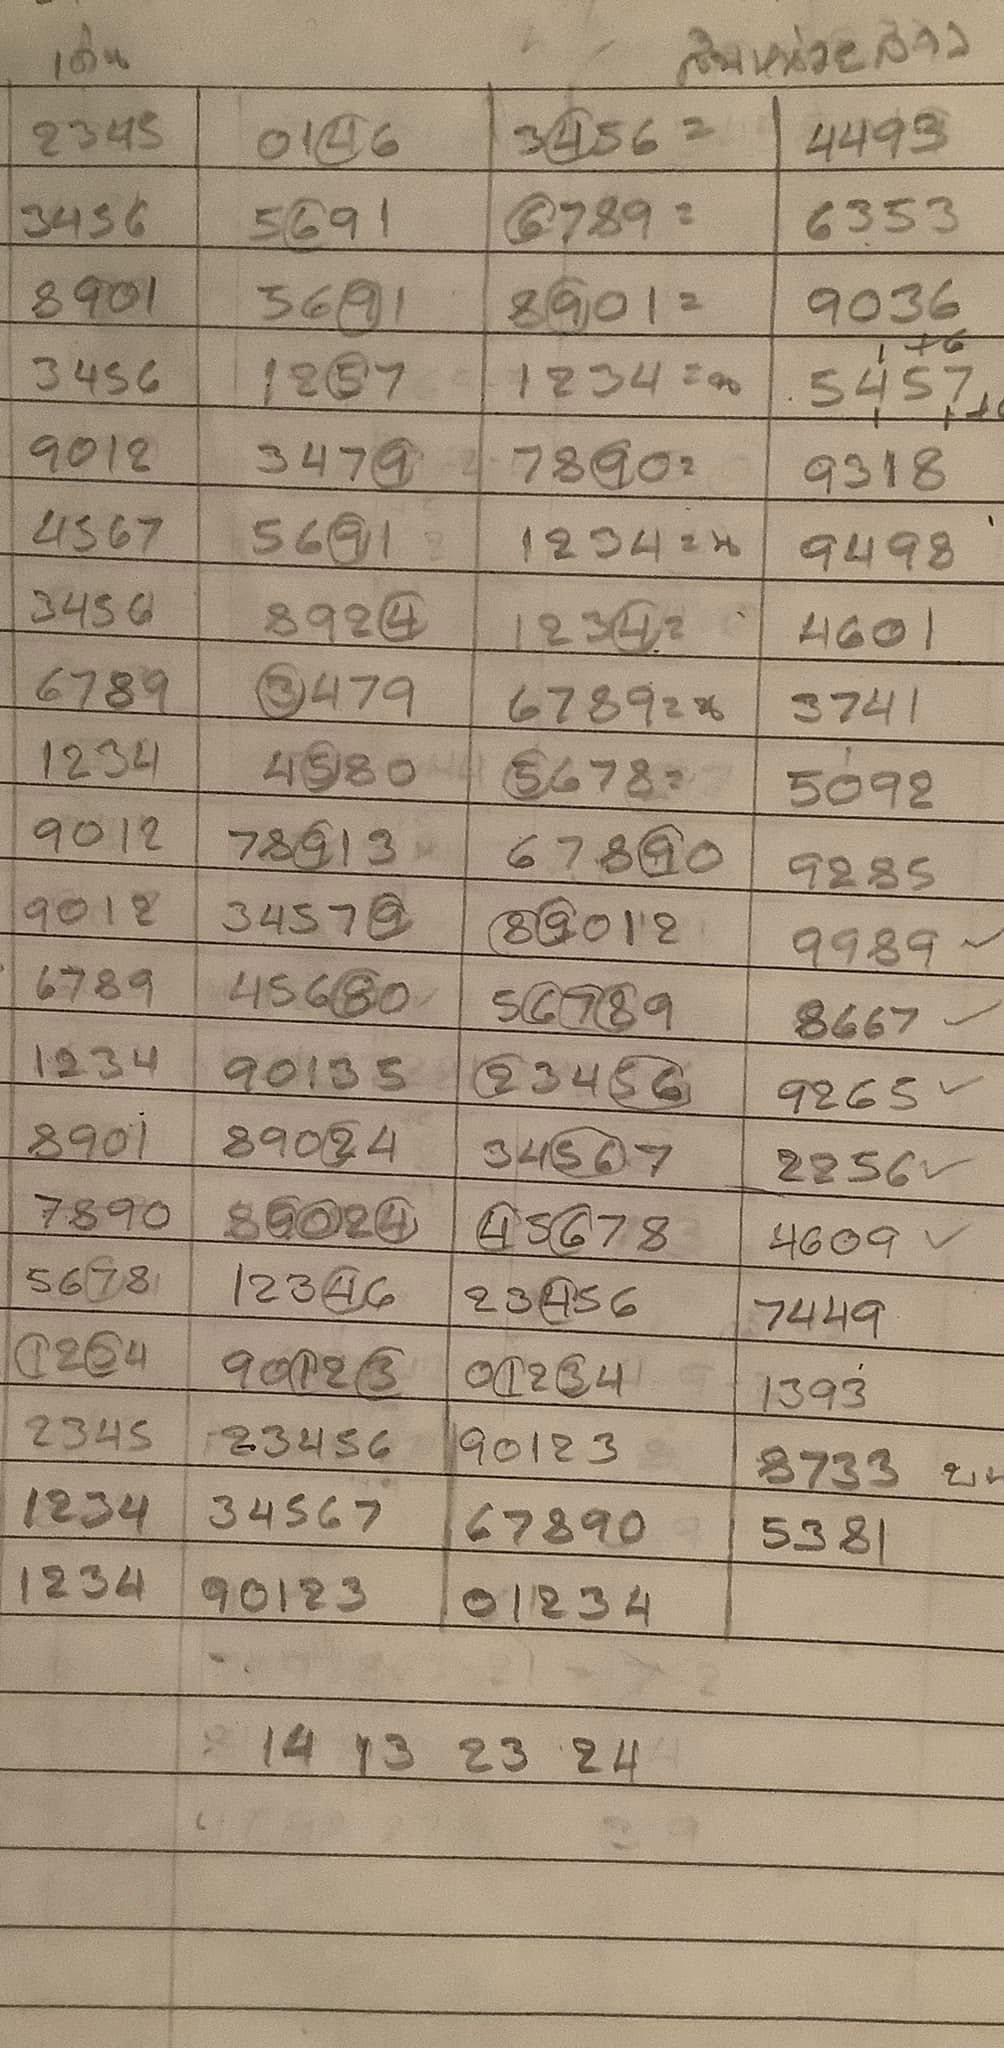 เด่น
2345 0146 3456= 4493
3456 5691 6789= 6353
8901 5691 8901= 9036
+6
3456 1257 1234=x 5457
9012 3479 7890= 9318
4567 5691 1234=x 9498
3456 8924 1234= 4601
6789 3479 6789=x 3741
1234 4580 5678= 5092
9012 78913 67890 9285
9012 34579 89012 9989 ✓
6789 45680 56789 8667 ✓
1234 90135 23456 9265 ✓
8901 89024 34567 2256 ✓
7890 89024 45678 4609 ✓
5678 12346 23456 7449
1234 90123 01234 1393
2345 23456 90123 8733
1234 34567 67890 5381
1234 90123 01234
14 13 23 24